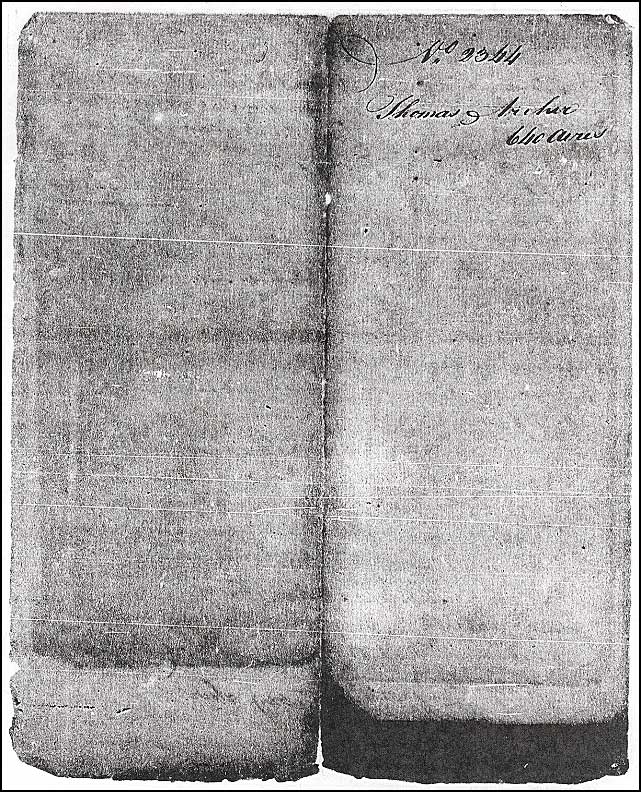 No 2344
Thomas Archer
640 Acres